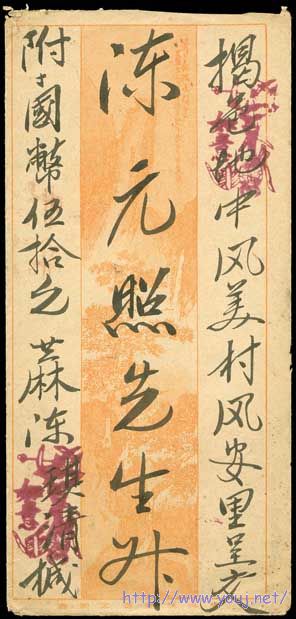 揭邑中风美村风安里呈交
陈元照先生升
附國幣伍拾元 蔴陈琪清缄
http://www.youj.net/